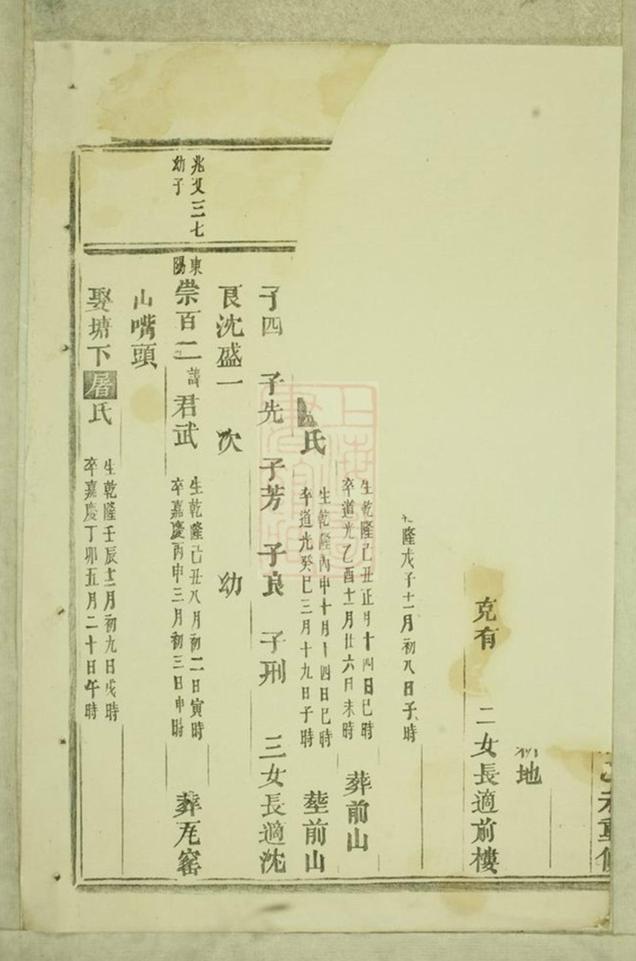 重修
地
克有 二女長適前樓
隆戊子十一月初八日子時
生乾隆己丑正月十四日巳時
卒道光乙酉十一月廿六日未時
葬前山
氏
生乾隆丙申十月十四日巳時
卒道光癸巳三月十九日子時
塟前山
子四 子先 子芳 子良 子刑 三女長適沈
良沈盛一 次 幼
兆文三七
幼子
東陽
崇百二 諱君武
生乾隆己丑八月初二日寅時
卒嘉慶丙申三月初三日申時
葬瓦窑
山嘴頭
娶塘下屠氏
生乾隆壬辰十二月初九日戌時
卒嘉慶丁卯五月二十日午時